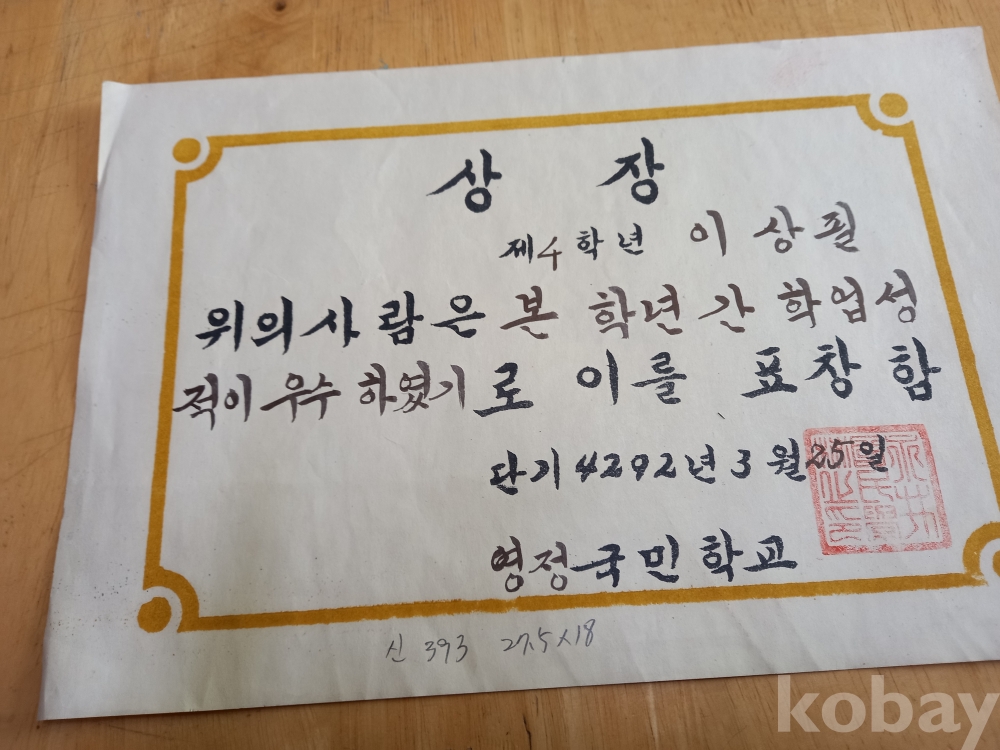 상 장
제4학년 이상필
위의 사람은 본 학년간 학업성
적이 우수하였기로 이를 표창함
단기 4292년 3월 25일
영정국민학교
신 393 27.5×18
kobay